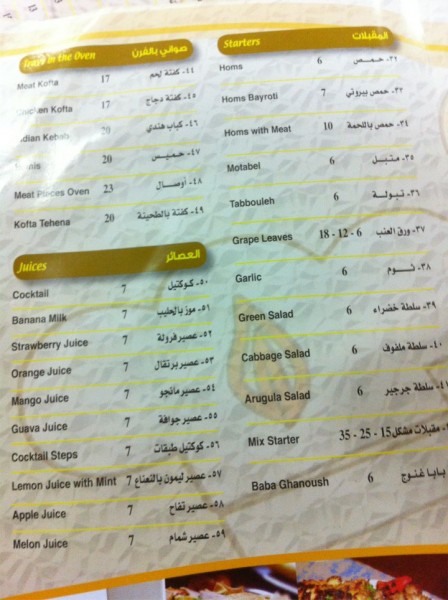 Trays in the Oven صواني بالفرن
Meat Kofta 17 ٤٤- كفتة لحم
Chicken Kofta 17 ٤٥- كفتة دجاج
Indian Kebab 20 ٤٦- كباب هندي
20 ٤٧- حميس
Meat Pieces Oven 23 ٤٨- أوصال
Kofta Tehena 20 ٤٩- كفتة بالطحينة
Juices العصائر
Cocktail 7 ٥٠- كوكتيل
Banana Milk 7 ٥١- موز بالحليب
Strawberry Juice 7 ٥٢- عصير فرولة
Orange Juice 7 ٥٣- عصير برتقال
Mango Juice 7 ٥٤- عصير مانجو
Guava Juice 7 ٥٥- عصير جوافة
Cocktail Steps 7 ٥٦- كوكتيل طبقات
Lemon Juice with Mint 7 ٥٧- عصير ليمون بالنعناع
Apple Juice 7 ٥٨- عصير تفاح
Melon Juice 7 ٥٩- عصير شمام
Starters المقبلات
Homs 6 حمص
Homs Bayroti 7 ٣٢- حمص بيروتي
Homs with Meat 10 ٣٤- حمص باللحمة
Motabel 6 ٣٥- متبل
Tabbouleh 6 ٣٦- تبولة
Grape Leaves 18 - 12 - 6 ٣٧- ورق العنب
Garlic 6 ٣٨- ثوم
Green Salad 6 ٣٩- سلطة خضراء
Cabbage Salad 6 ٤٠- سلطة ملفوف
Arugula Salad 6 سلطة جرجير
Mix Starter 35 - 25 - 15 مقبلات مشكل
Baba Ghanoush 6 بابا غنوج